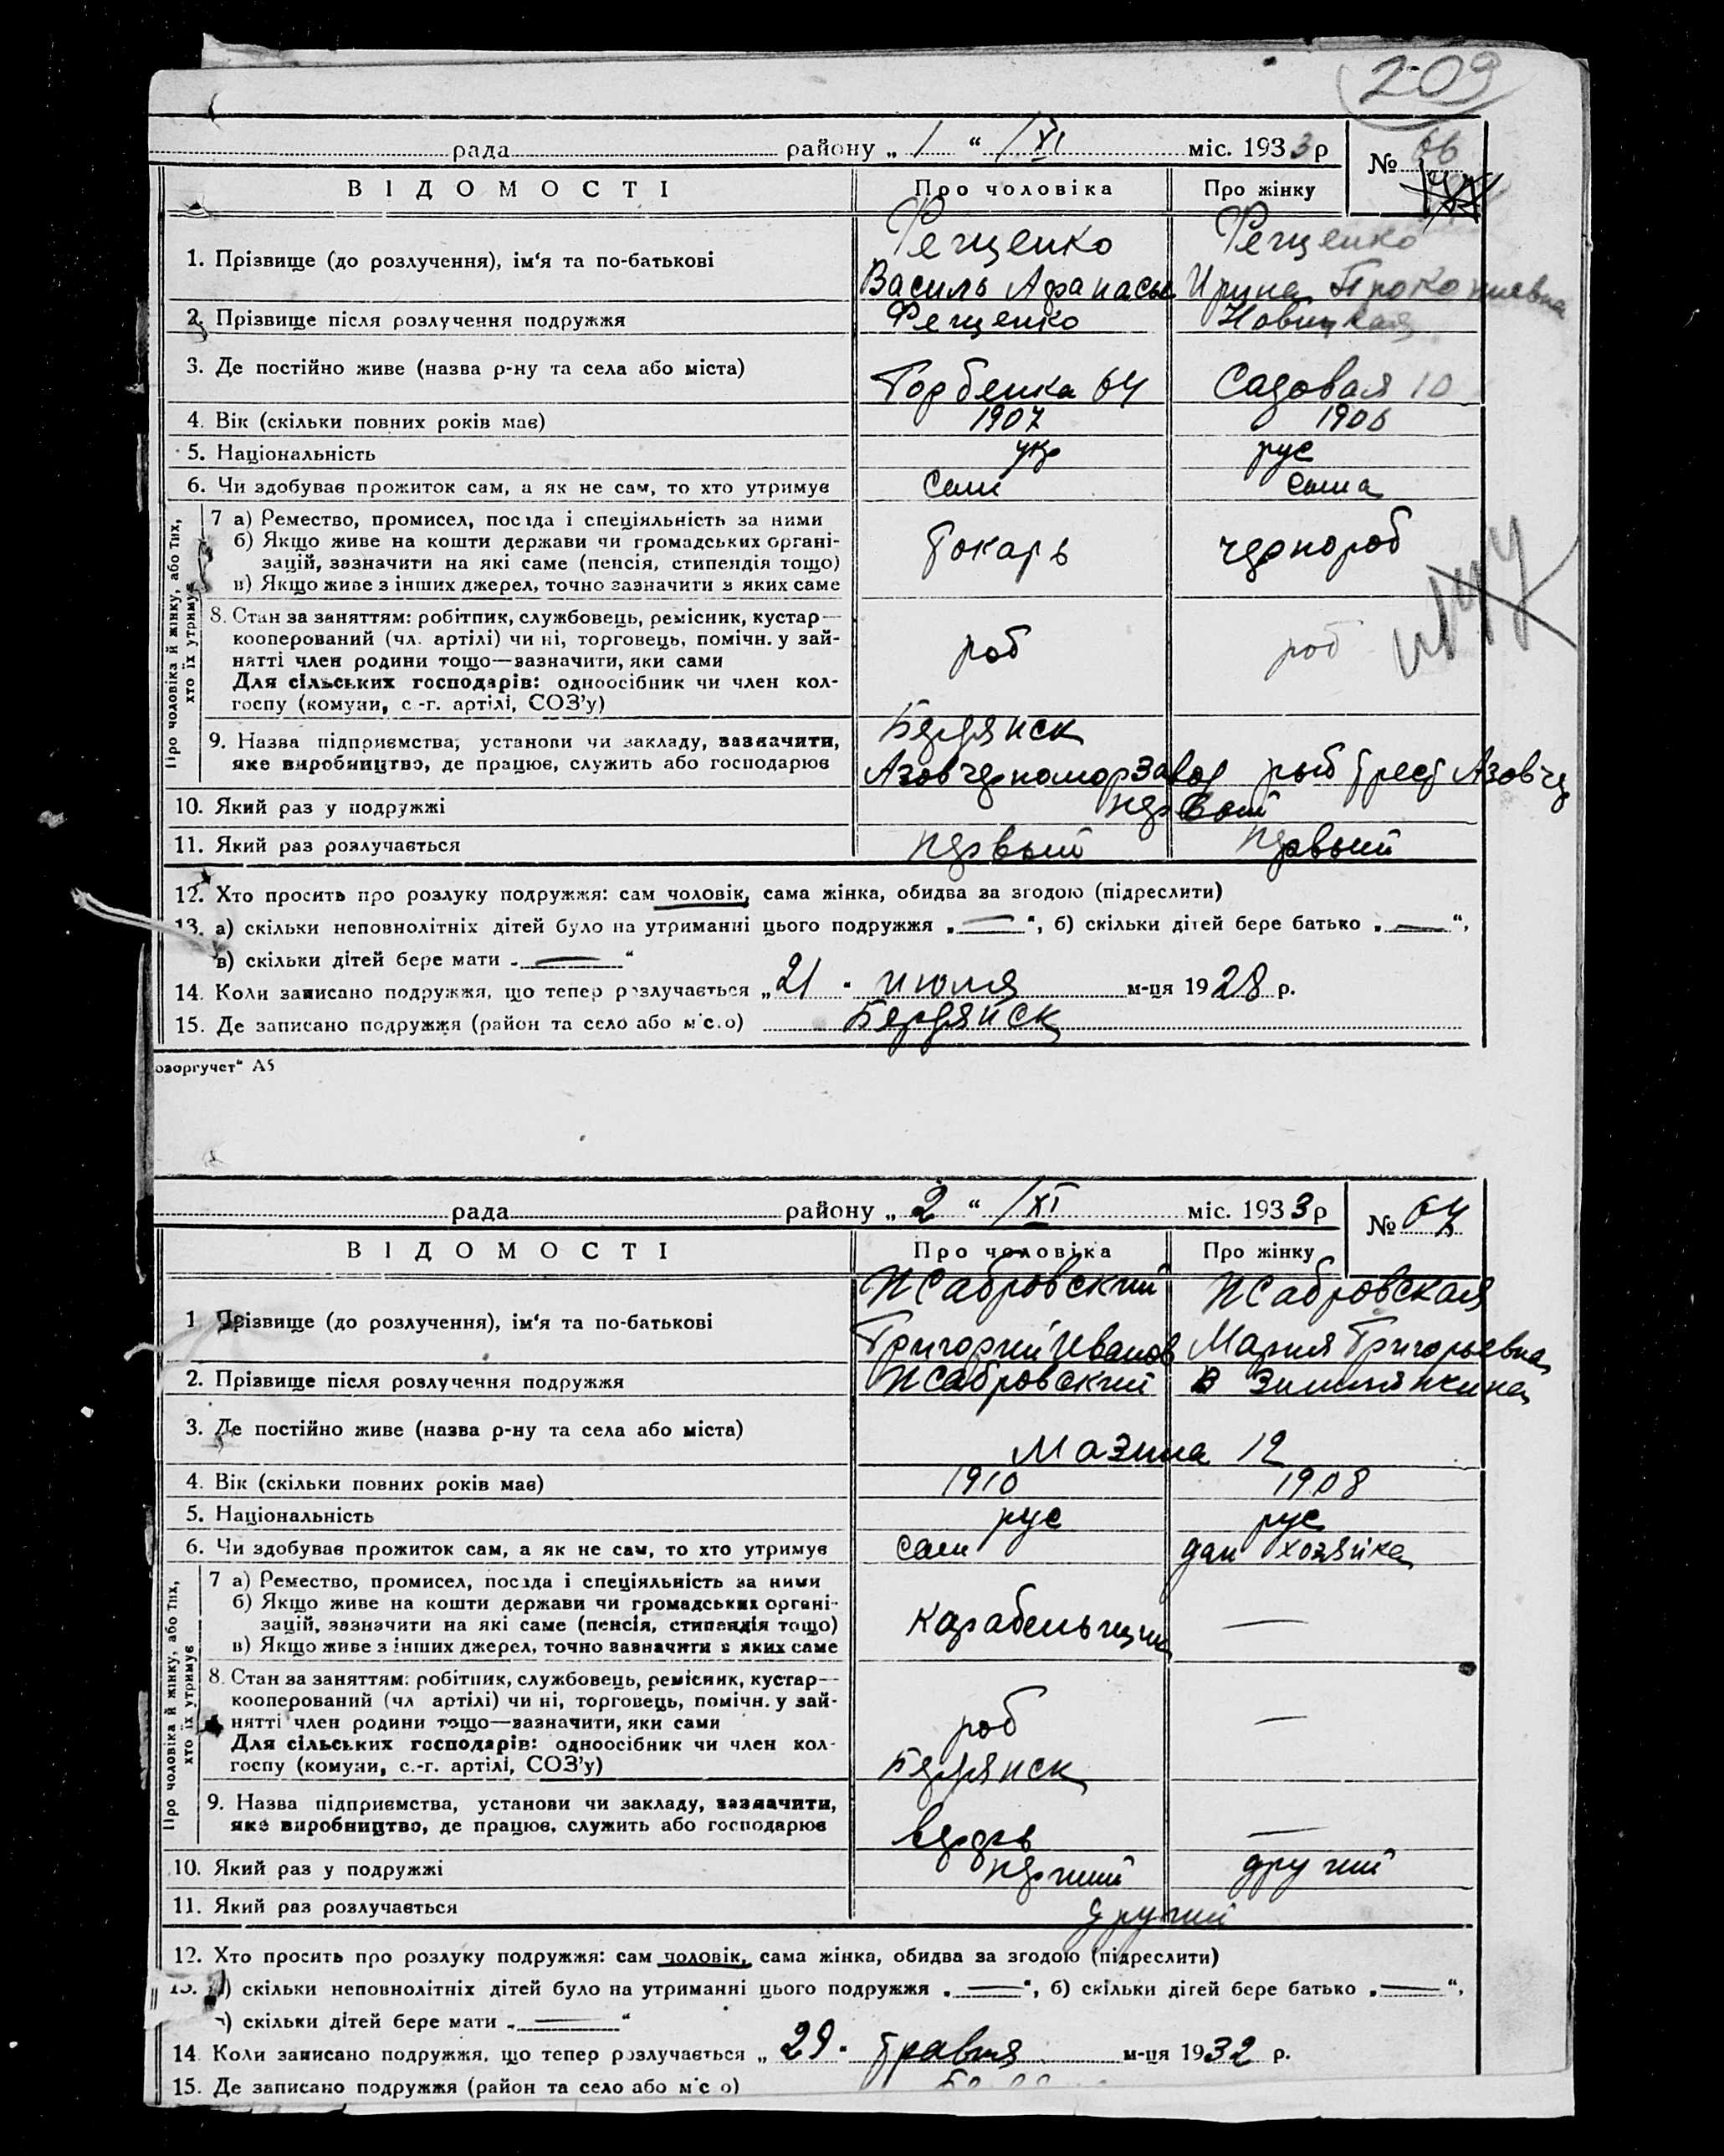 209
рада района „ 1 “ / XI міс. 1933 р
№ 66
ВІДОМОСТІ Про чоловіка Про жінку
1. Прізвище (до розлучення), ім‘я та по-батькові
Фещенко Фещенко
Василь Афанасьев Ирина Прокопиевна
2. Прізвище після розлучення подружжя Фещенко Новицкая
3. Де постійно живе (назва р-ну та села або міста) Горбенка 64 Садовая 10
4. Вік (скільки повних років має) 1907 1906
5. Національність укр рус
6. Чи здобував прожиток сам, а як не сам, то хто утримує Сам Сама
Про чоловіка й жінку, або тих,
хто їх утримує
7 а) Ремество, промисел, посада і спеціяльність за ними
б) Якщо живе на кошти держави чи громадських органі-
зацій, зазначити на які саме (пенсія, стипендія тощо) Токарь чернороб
в) Якщо живе з інших джерел, точно зазначити з яких саме
8. Стан за заняттям: робітник, службовець, ремісник, кустар—
кооперований (чл. артілі) чи ні, торговець, помічн. у зай-
нятті член родини тощо—зазначити, яки сами роб роб
Для сільських господарів: одноосібник чи член кол-
госпу (комуни, с.-г. артілі, СОЗ’у)
9. Назва підприємства, установи чи закладу, зазначити, Бердянск
яке виробництво, де працює, служить або господарює Азовчерномор завод рыб трест Азовчер
10. Який раз у подружжі первый
11. Який раз розлучається первый первый
12. Хто просить про розлуку подружжя: сам чоловік, сама жінка, обидва за згодою (підреслити)
13. а) скільки неповнолітніх дітей було на утриманні цього подружжя „ — “, б) скільки дітей бере батько „ — “,
в) скільки дітей бере мати „ — “
14. Коли записано подружжя, що тепер розлучається „ 21 “ июля м-ця 1928 р.
15. Де записано подружжя (район та село або місто) Бердянск
озоргучет“ А5
рада району „ 2 “ / XI міс. 1933 р
№ 67
ВІДОМОСТІ Про чоловіка Про жінку
1 Прізвище (до розлучення), ім‘я та по-батькові
Григорий Иванов Мария Григорьевна
2. Прізвище після розлучення подружжя
3. Де постійно живе (назва р-ну та села або міста) Мазина 12
4. Вік (скільки повних років має) 1910 1908
5. Національність рус рус
6. Чи здобував прожиток сам, а як не сам, то хто утримує Сам дом хозяйка
Про чоловіка й жінку, або тих,
хто їх утримує
7 а) Ремество, промисел, посада і спеціяльність за ними
б) Якщо живе на кошти держави чи громадських органі-
зацій, зазначити на які саме (пенсія, стипендія тощо) Карабельщик —
в) Якщо живе з інших джерел, точно зазначити з яких саме
8. Стан за заняттям: робітник, службовець, ремісник, кустар—
кооперований (чл артілі) чи ні, торговець, помічн. у зай-
нятті член родини тощо—зазначити, яки сами роб —
Для сільських господарів: одноосібник чи член кол-
госпу (комуни, с.-г. артілі, СОЗ’у) Бердянск
9. Назва підприємства, установи чи закладу, зазначити,
яке виробництво, де працює, служить або господарює верфь —
10. Який раз у подружжі перший другий
11. Який раз розлучається другий
12. Хто просить про розлуку подружжя: сам чоловік, сама жінка, обидва за згодою (підреслити)
13. а) скільки неповнолітніх дітей було на утриманні цього подружжя „ — “, б) скільки дітей бере батько „ — “,
в) скільки дітей бере мати „ — “
14. Коли записано подружжя, що тепер розлучається „ 29 “ травня м-ця 1932 р.
15. Де записано подружжя (район та село або місто)